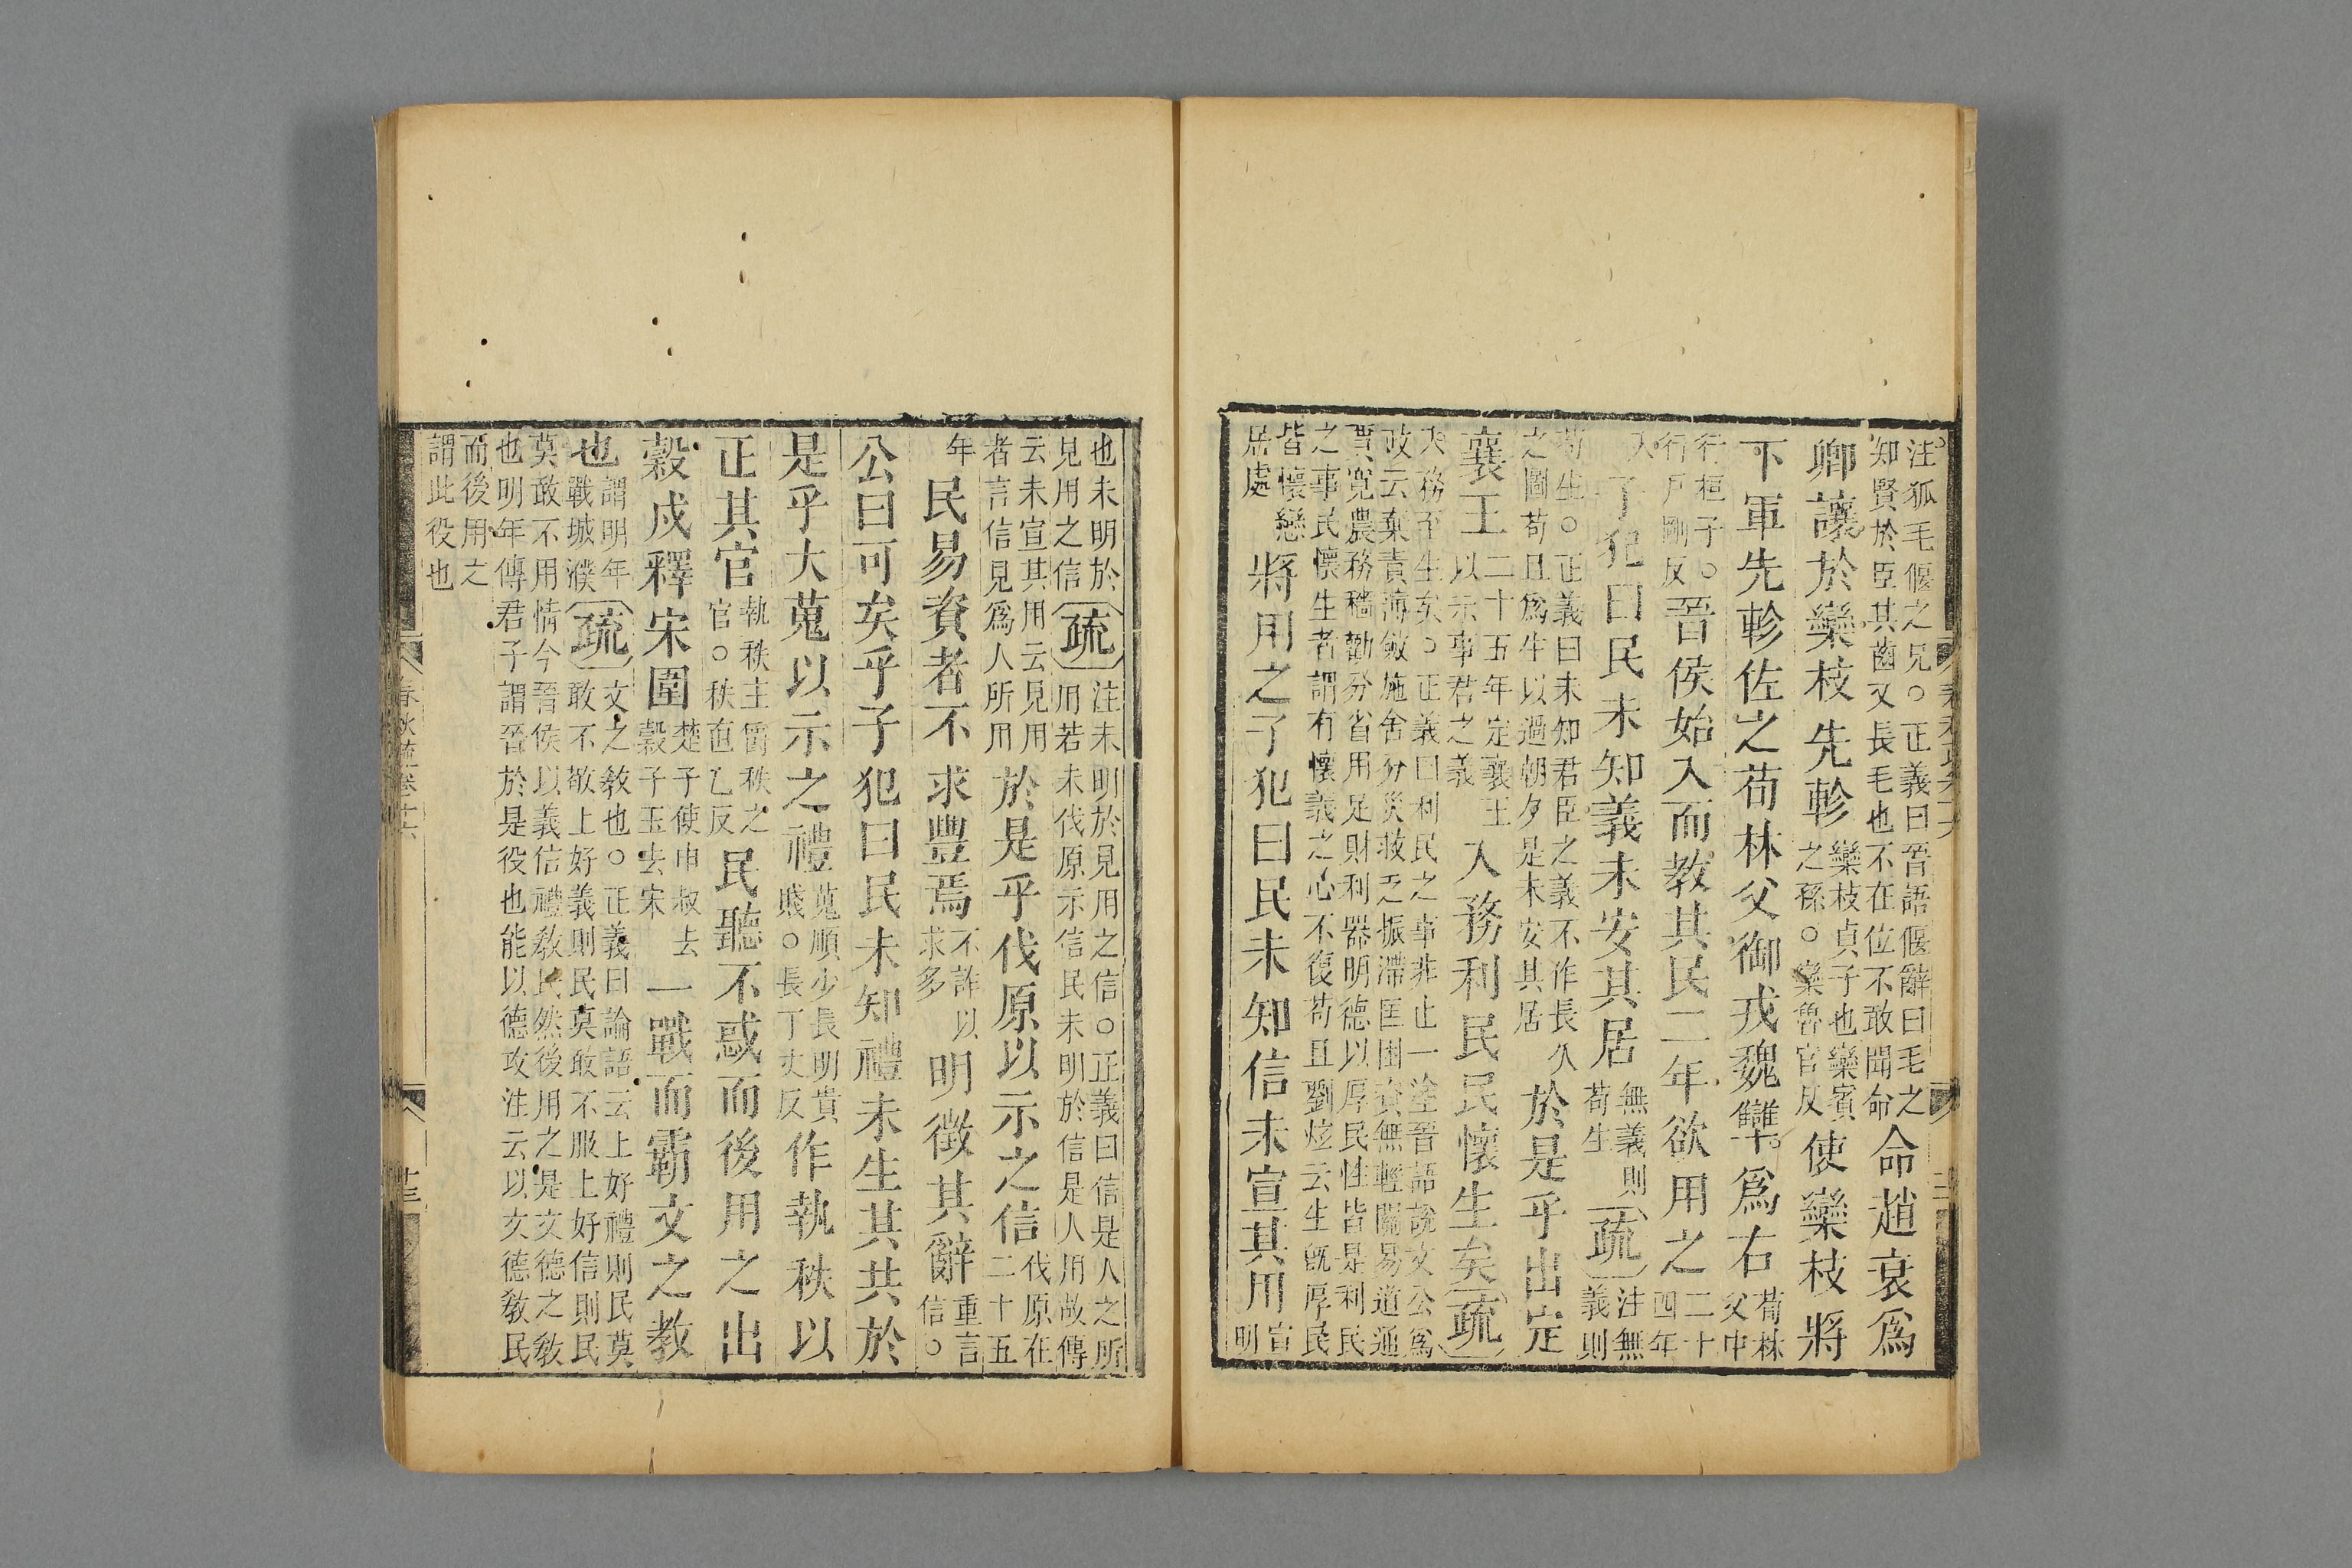 注狐毛偃之兄○正義曰晉語偃辭曰毛之
知賢於臣其齒又長毛也不在位不敢聞命
命趙衰爲
卿讓於欒枝先軫
欒枝貞子也欒賓
之孫○欒魯官反
使欒枝將
下軍先軫佐之荀林父御戎魏犨爲右
荀林
父中
行桓子○
行戶剛反
晉侯始入而教其民二年欲用之
二十
四年
入
子犯曰民未知義未安其居
無義則
苟生
疏
注無
義則
苟生○正義曰未知君臣之義不作長久
之圖苟且爲生以過朝夕是未安其居
於是乎出定
襄王
二十五年定襄王
以示事君之義
入務利民民懷生矣
疏
入務至生矣○正義曰利民之事非止一塗晉語說文公爲
政云棄責薄斂施舍分災救乏振滯匡困資無輕關易道通
賈寬農務穡勸分省用足財利器明德以厚民性皆是利民
之事民懷生者謂有懷義之心不復苟且劉炫云生既厚民
皆懷戀
居處
將用之子犯曰民未知信未宣其用
宣
明
也未明於
見用之信
疏
注未明於見用之信○正義曰信是人之所
用若未伐原示信民未明於信是人用故傳
云未宣其用云見用
者言信見爲人所用
於是乎伐原以示之信
伐原在
二十五
年
民易資者不求豐焉
不詐以
求多
明徵其辭
重言
信○
公曰可矣乎子犯曰民未知禮未生其共於
是乎大蒐以示之禮
蒐順少長明貴
賤○長丁丈反
作執秩以
正其官
執秩主爵秩之
官○秩直乙反
民聽不惑而後用之出
穀戍釋宋圍
楚子使申叔去
穀子玉去宋
一戰而霸文之教
也
謂明年
戰城濮
疏
文之教也○正義曰論語云上好禮則民莫
敢不敬上好義則民莫敢不服上好信則民
莫敢不用情今晉侯以義信禮教民然後用之是文德之教
也明年傳君子謂晉於是役也能以德攻注云以文德教民
而後用之
謂此役也
春秋疏卷十六